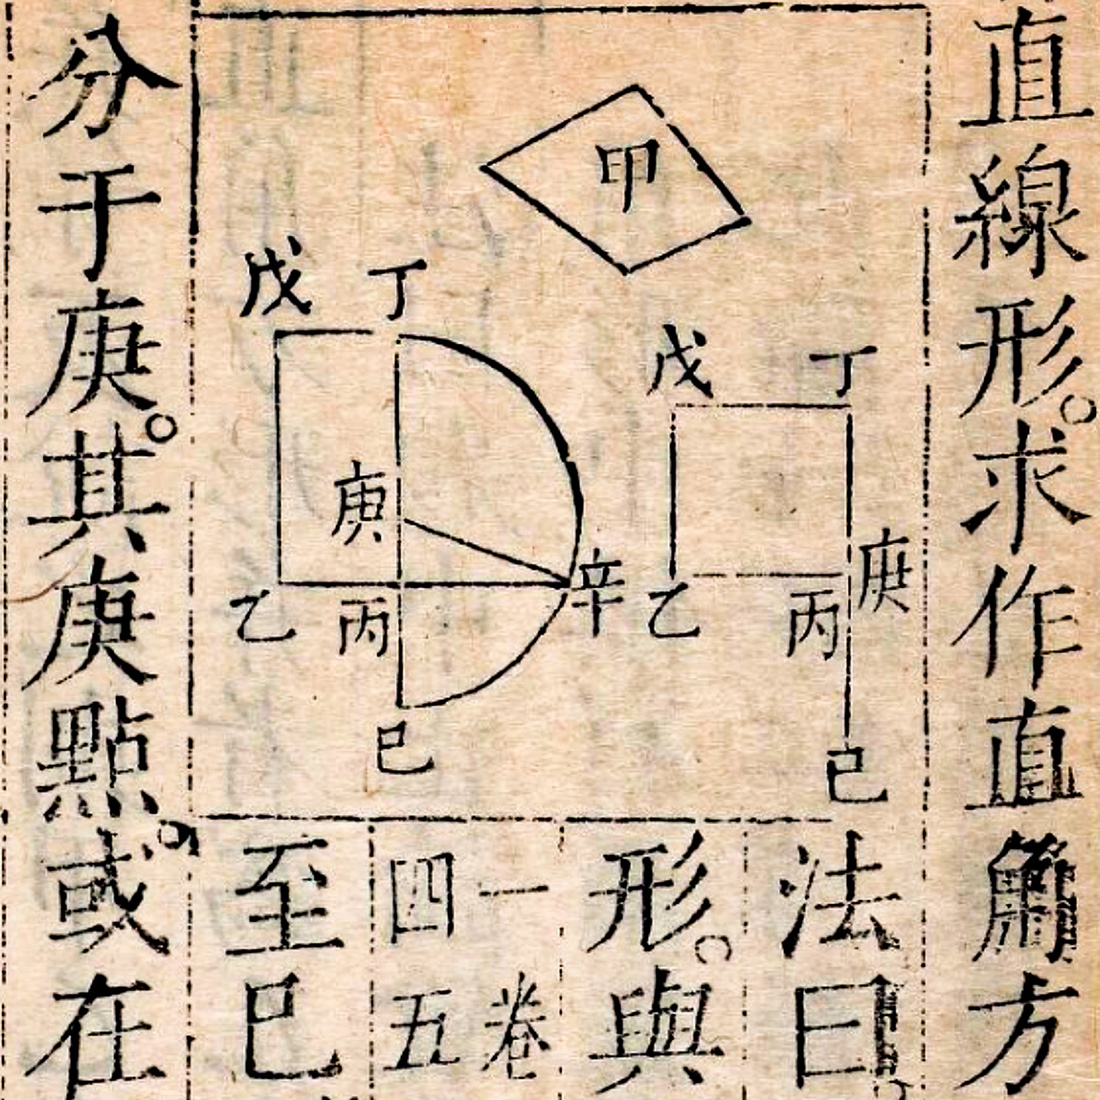 直線形。求作直角方
甲
戊
丁
戊
丁
庚
辛
乙
丙
己
庚
乙
丙
己
法曰
形。與
一卷
四五
至己
分于庚。其庚點。或在